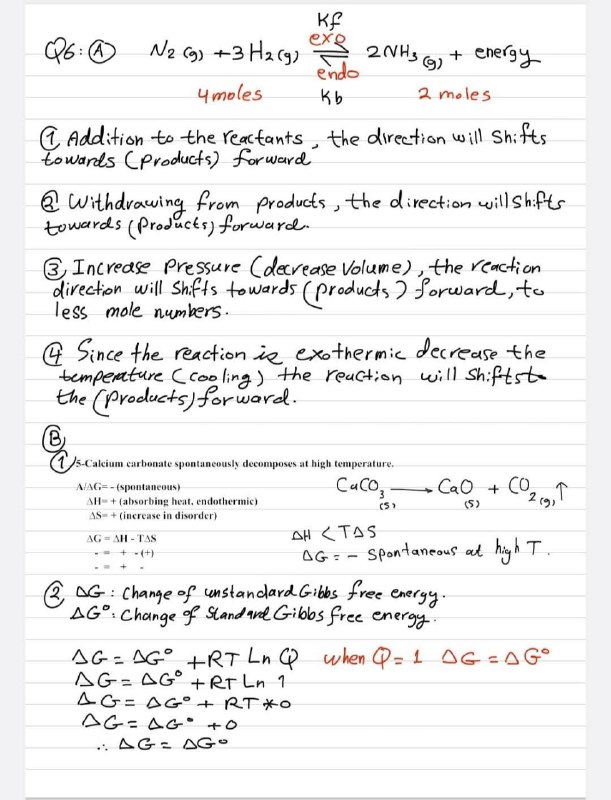 Kf
Q6: Ⓐ N2 (g) + 3 H2(g) exo ⇌ endo 2NH3 (g) + energy
4 moles Kb 2 moles
① Addition to the reactants, the direction will Shifts
towards (Products) forward
② Withdrawing from products, the direction will shifts
towards (Products) forward.
③ Increase Pressure (decrease Volume), the reaction
direction will Shifts towards (products) forward, to
less mole numbers.
④ Since the reaction is exothermic decrease the
temperature (cooling) the reaction will shiftst
the (Products) forward.
Ⓑ
① 5-Calcium carbonate spontaneously decomposes at high temperature.
A/ΔG= - (spontaneous)
ΔH= + (absorbing heat, endothermic)
ΔS= + (increase in disorder)
ΔG = ΔH - TΔS
- = + -(+)
- = + -
CaCO3 (s) → CaO (s) + CO2 (g) ↑
ΔH < TΔS
ΔG = - Spontaneous at high T.
② ΔG : Change of unstandard Gibbs free energy.
ΔG°: Change of Standard Gibbs free energy.
ΔG = ΔG° + RT Ln Q when Q = 1 ΔG = ΔG°
ΔG = ΔG° + RT Ln 1
ΔG = ΔG° + RT *0
ΔG = ΔG° + 0
∴ ΔG = ΔG°